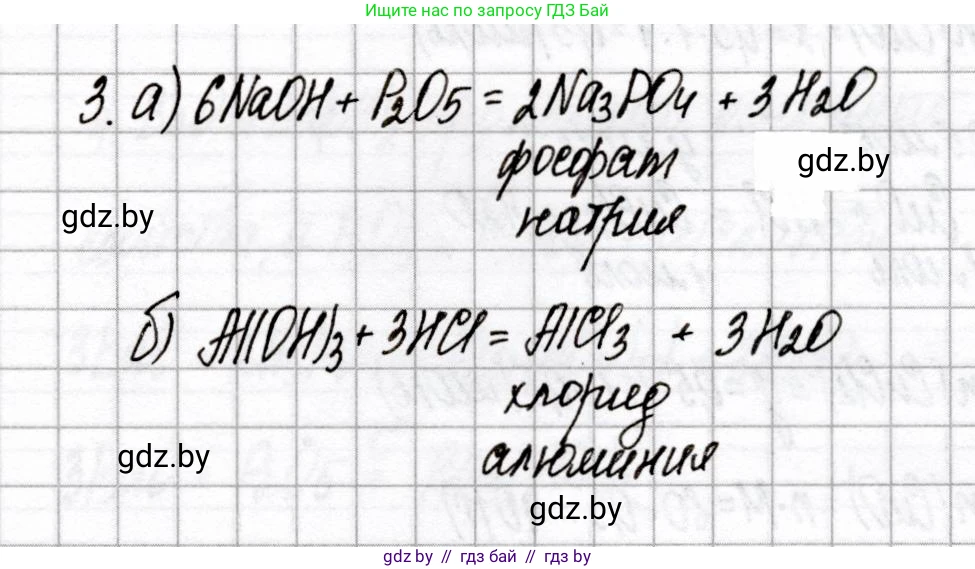 Ищите нас по запросу ГДЗ Бай
3. а) 6NaOH + P2O5 = 2Na3PO4 + 3H2O
фосфат
gdz.by
gdz.by
натрия
б) Al(OH)3 + 3HCl = AlCl3 + 3H2O
хлорид
gdz.by
алюминия
gdz.by
gdz.by // гдз бай // gdz by